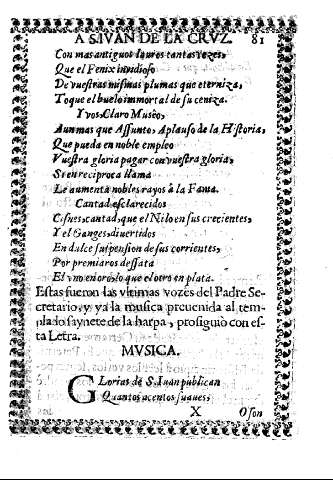 A S. IVAN DE LA CRVZ. 81
Con mas antiguos lauros tantas vezes,
Que el Fenix inuidioso
De vuestras mismas plumas que eterniza,
Toque el buelo immortal de su ceniza.
Y vos, Claro Museo,
Aun mas que Assunto, Aplauso de la Historia,
Que pueda en noble empleo
Vuestra gloria pagar con vuestra gloria,
Si en reciproca llama
Le aumenta nobles rayos à la Fama.
Cantad esclarecidos
Cisnes, cantad, que el Nilo en sus crecientes,
Y el Ganges, diuertidos
En dulce suspension de sus corrientes,
Por premiaros dessata
El vno en oro lo que el otro en plata.
Estas fueron las vltimas vozes del Padre Se-
cretario, y ya la musica preuenida al tem-
plado saynete de la harpa, prosiguiò con es-
ta Letra.
MVSICA.
Glorias de S. Iuan publican
Quantos acentos suaues,
X Oson